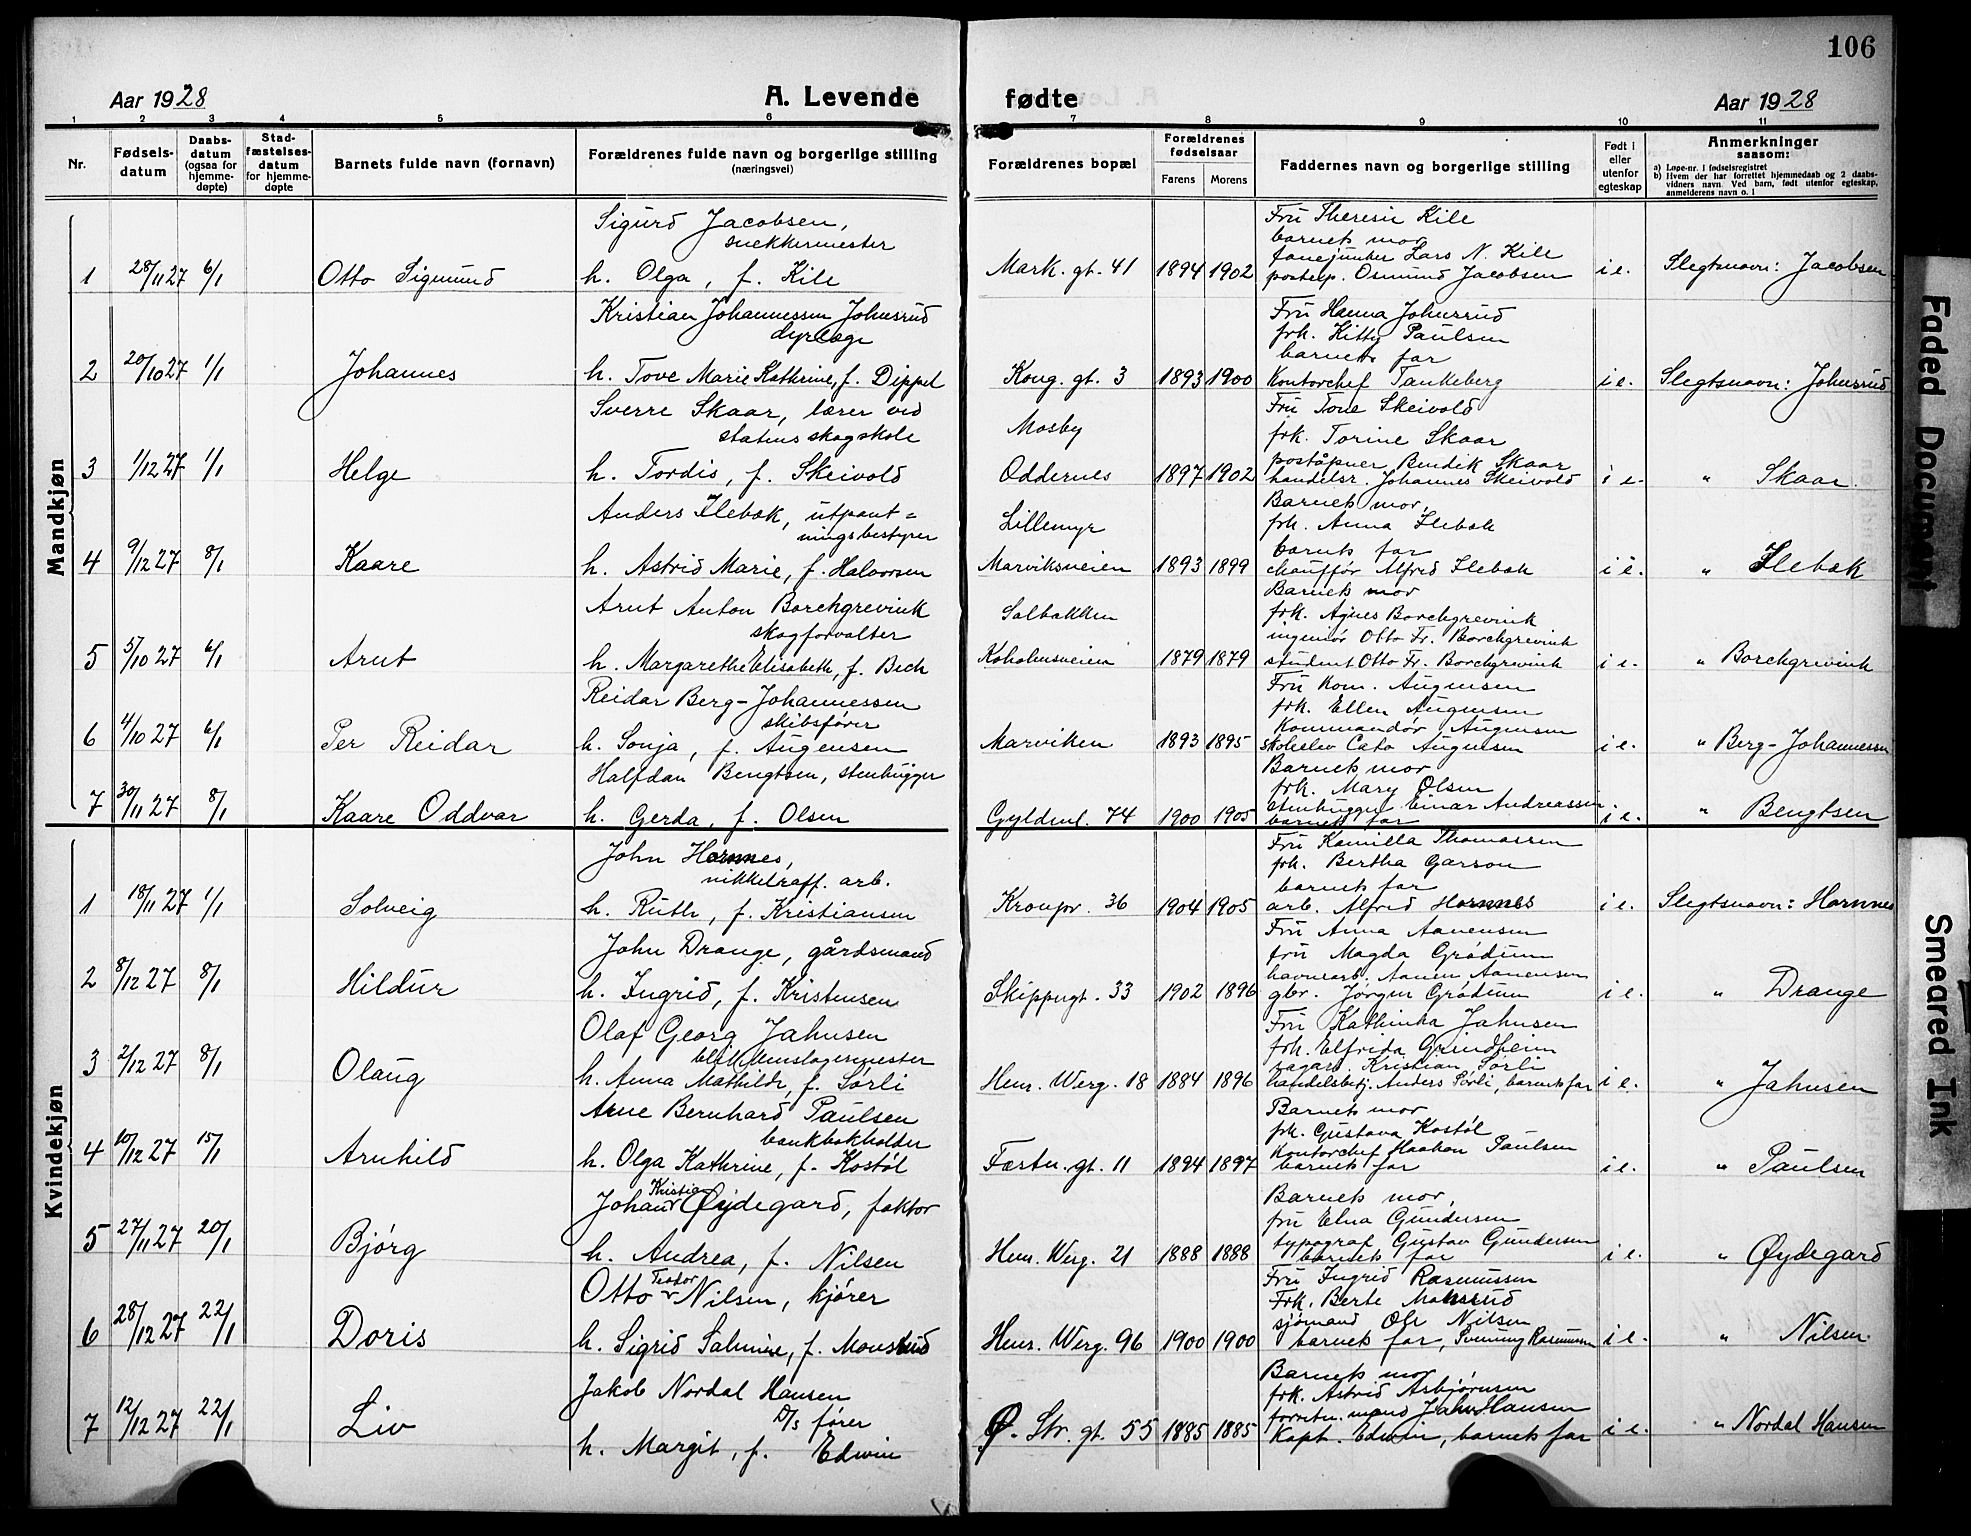 106
Aar 1928
A. Levende
fødte
Aar 1928
1 2 3 4 5 6 7 8 9 10 11
Nr.
Fødsels-
datum
Daabs-
datum
(ogsaa for
hjemme-
døpte)
Stad-
fæstelses-
datum
for hjemme-
døpte
Barnets fulde navn (fornavn)
Forældrenes fulde navn og borgerlige stilling
(næringsvei)
Forældrenes bopæl
Forældrenes
fødselsaar
Farens Morens
Faddernes navn og borgerlige stilling
Født i
eller
utenfor
egteskap
Anmerkninger
saasom:
a) Løpe-nr. i fødselsregistret
b) Hvem der har forrettet hjemmedaab og 2 daabs-
vidners navn. Ved barn, født utenfor egteskap,
anmelderens navn o. l
Mandkjøn
Sigurd Jacobsen,
snekkermester
1 28/11 27 6/1 Otto Sigmund h. Olga, f. Kile
Mark. gt. 41 1894 1902
Fru Theresie Kile
barnets mor
fanejunker Lars N. Kile
postexp. Osmund Jacobsen
i e. Slegtsnavn: Jacobsen
Kristian Johannessen Johnsrud
dyrlæge
2 20/10 27 1/1 Johannes h. Tove Marie Kathrine, f. Dippel
Kong. gt. 3 1893 1900
Fru Hanna Johnsrud
frk. Kitty Paulsen
barnets far
Kontorchef Tankeberg
i e. Slegtsnavn: Johnsrud
Sverre Skaar, lærer ved
statens skogskole
3 1/12 27 1/1 Helge h. Tordis, f. Skeivold
Mosby
Oddernes 1897 1902
Fru Tone Skeivold
frk. Torine Skaar
poståpner Bendik Skaar
handelsr. Johannes Skeivold
i e. " Skaar.
Anders Ilebæk, utpant=
ningsbestyrer
4 9/12 27 8/1 Kaare h. Astrid Marie, f. Halvorsen
Lillemyr
Marviksveien 1893 1899
Barnets mor,
frk. Anna Ilebæk
barnets far
chauffør Alfred Ilebæk
i e. " Ilebæk
Arnt Anton Borchgrevink
skogforvalter
5 5/10 27 6/1 Arnt h. Margarethe Elisabeth, f. Bech
Solbakken
Koholmsveien 1879 1879
Barnets mor
frk. Agnes Borchgrevink
ingeniør Otto Fr. Borchgrevink
student Otto Fr. Borchgrevink
i e. " Borchgrevink
Reidar Berg-Johannessen
skibsfører
6 4/10 27 6/1 Per Reidar h. Sonja, f. Augensen
Marviken 1893 1895
Fru Kom. Augensen
frk. Ellen Augensen
Kommandør Augensen
skoleelev Cato Augensen
i e. " Berg-Johannessen
Halfdan Bengtsen, stenhugger
7 30/11 27 8/1 Kaare Oddvar h. Gerda, f. Olsen
Gyldenl. 74 1900 1905
Barnets mor
frk. Mary Olsen
Stenhugger Einar Andreassen
barnets far
i e. " Bengtsen
Kvindekjøn
John Hornnes,
nikkelraff. arb.
1 18/11 27 1/1 Solveig h. Ruth, f. Kristiansen
Kronpr. 36 1904 1905
Fru Kamilla Thomassen
frk. Bertha Garson
barnets far
arb. Alfred Hornnes
i e. Slegtsnavn: Hornnes
John Drange, gårdsmand
2 8/12 27 8/1 Hildur h. Ingrid, f. Kristensen
Skippergt. 33 1902 1896
Fru Anna Aanensen
fru Magda Grødum
havnearb. Aanen Aanensen
gbr. Jørgen Grødum
i e. " Drange
Olaf Georg Jahnsen
blikkenslagermester
3 2/12 27 8/1 Olaug h. Anna Mathilde, f. Sørli
Henr. Werg. 18 1884 1896
Fru Kathinka Jahnsen
frk. Elfrida Grindheim
Kristian Sørli
handelsbetj. Anders Sørli, barnets far
i e. " Jahnsen
Arne Bernhard Paulsen
bankbokholder
4 10/12 27 15/1 Arnhild h. Olga Kathrine, f. Kostøl
Festn. gt. 11 1894 1897
Barnets mor
frk. Gustava Kostøl
Kontorchef Haakon Paulsen
barnets far
i e. " Paulsen
Johan Kristian Øydegard, faktor
5 27/11 27 20/1 Bjørg h. Andrea, f. Nilsen
Henr. Werg. 21 1888 1888
Barnets mor,
fru Elna Gundersen
typograf Gustav Gundersen
barnets far
i e. " Øydegard
Otto Teodor Nilsen, kjører
6 28/12 27 22/1 Doris h. Sigrid Salmine, f. Monsrud
Henr. Werg. 96 1900 1900
Fru Ingrid Rasmussen
Frk. Berte Monsrud
sjømand Ole Nilsen
barnets far, Svenning Rasmussen
i e. " Nilsen.
Jakob Nordal Hansen
D/s fører
7 12/12 27 22/1 Liv h. Margit, f. Edwin
Ø. Str. gt. 55 1885 1885
Barnets mor
frk. Astrid Asbjørnsen
forretn. mand John Hansen
Kapt. Edwin, barnets far
i e. " Nordal Hansen
Faded Document
Smeared Ink